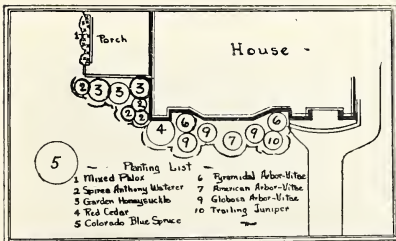 Porch
House -
1
2 3 3 3
2
2 2
4 6 6
9 9 7 9 10
5
- Planting List -
1 Mixed Phlox
2 Spirea Anthony Waterer
3 Garden Honeysuckle
4 Red Cedar
5 Colorado Blue Spruce
6 Pyramidal Arbor-Vitae
7 American Arbor-Vitae
9 Globosa Arbor-Vitae
10 Trailing Juniper